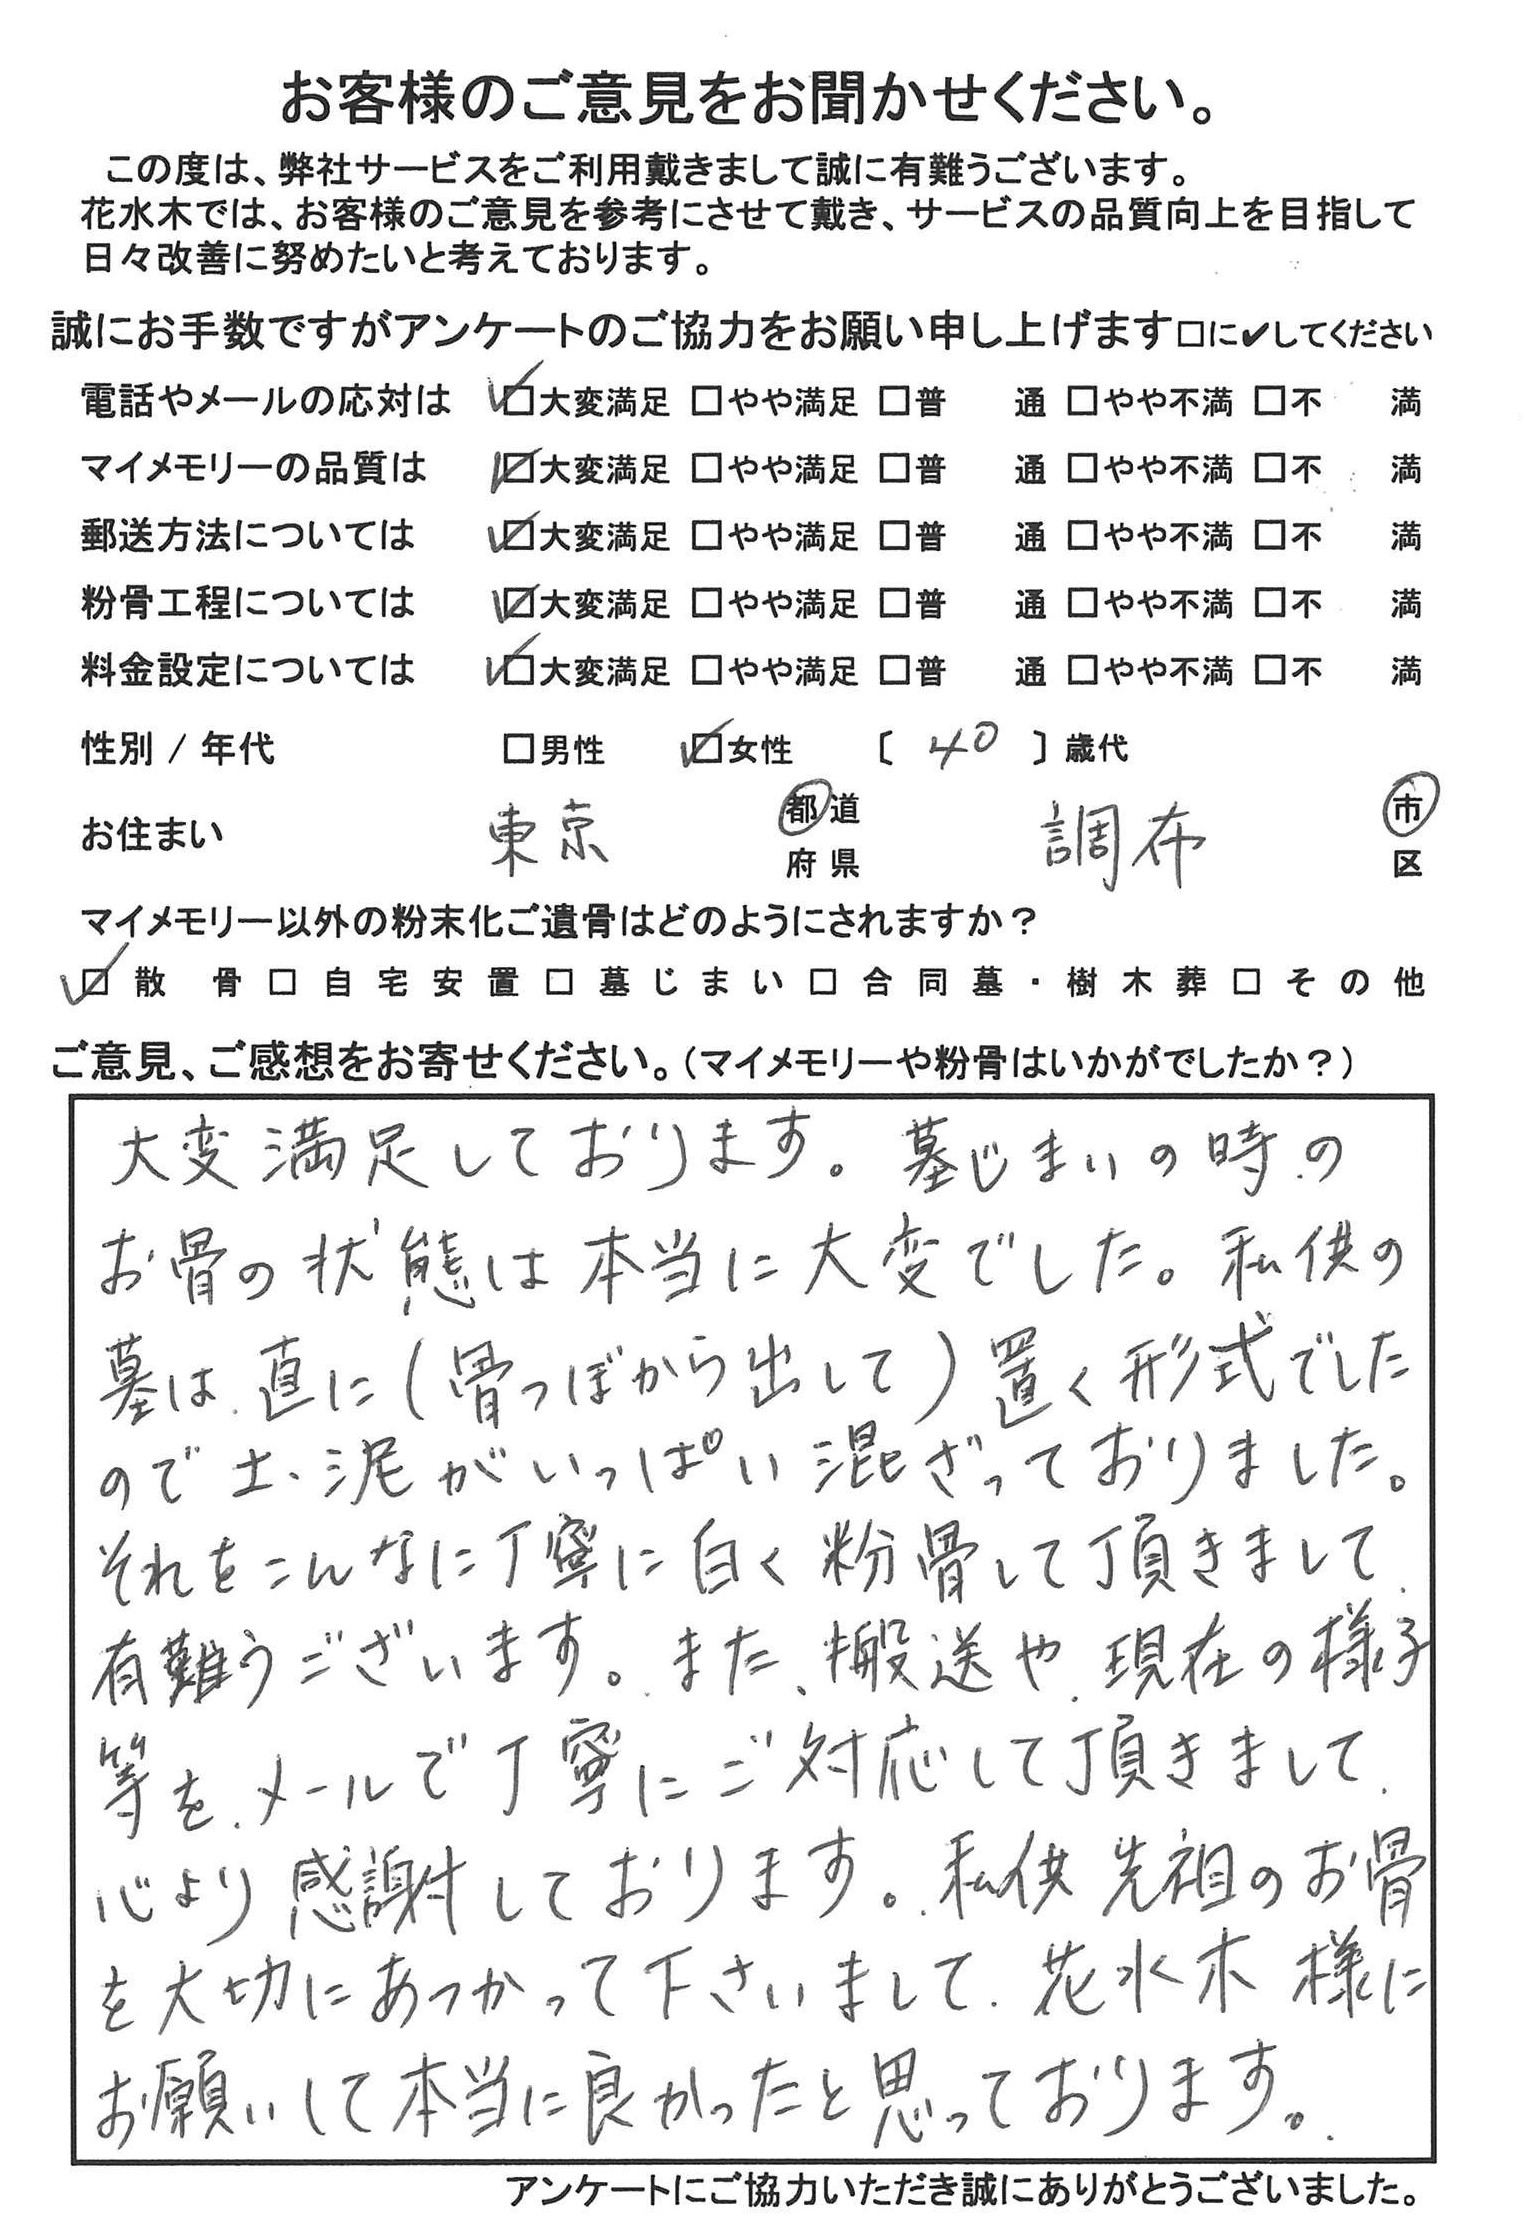 お客様のご意見をお聞かせください。
この度は、弊社サービスをご利用戴きまして誠に有難うございます。
花水木では、お客様のご意見を参考にさせて戴き、サービスの品質向上を目指して
日々改善に努めたいと考えております。
誠にお手数ですがアンケートのご協力をお願い申し上げます□に✔してください
電話やメールの応対は ☑大変満足 □やや満足 □普 通 □やや不満 □不 満
マイメモリーの品質は ☑大変満足 □やや満足 □普 通 □やや不満 □不 満
郵送方法については ☑大変満足 □やや満足 □普 通 □やや不満 □不 満
粉骨工程については ☑大変満足 □やや満足 □普 通 □やや不満 □不 満
料金設定については ☑大変満足 □やや満足 □普 通 □やや不満 □不 満
性別 / 年代 □男性 ☑女性 〔 40 〕歳代
お住まい 東京 都道府県 調布 市区
マイメモリー以外の粉末化ご遺骨はどのようにされますか？
☑散 骨 □自宅安置 □墓じまい □合同墓・樹木葬 □その他
ご意見、ご感想をお寄せください。（マイメモリーや粉骨はいかがでしたか？）
大変満足しております。墓じまいの時の
お骨の状態は本当に大変でした。私供の
墓は、直に(骨つぼから出して)置く形式でした
ので土、泥がいっぱい混ざっておりました。
それをこんなに丁寧に白く粉骨して頂きまして、
有難うございます。また、搬送や、現在の様子
等を、メールで丁寧にご対応して頂きまして、
心より感謝しております。私供先祖のお骨
を大切にあつかって下さいまして、花水木様に
お願いして本当に良かったと思っております。
アンケートにご協力いただき誠にありがとうございました。